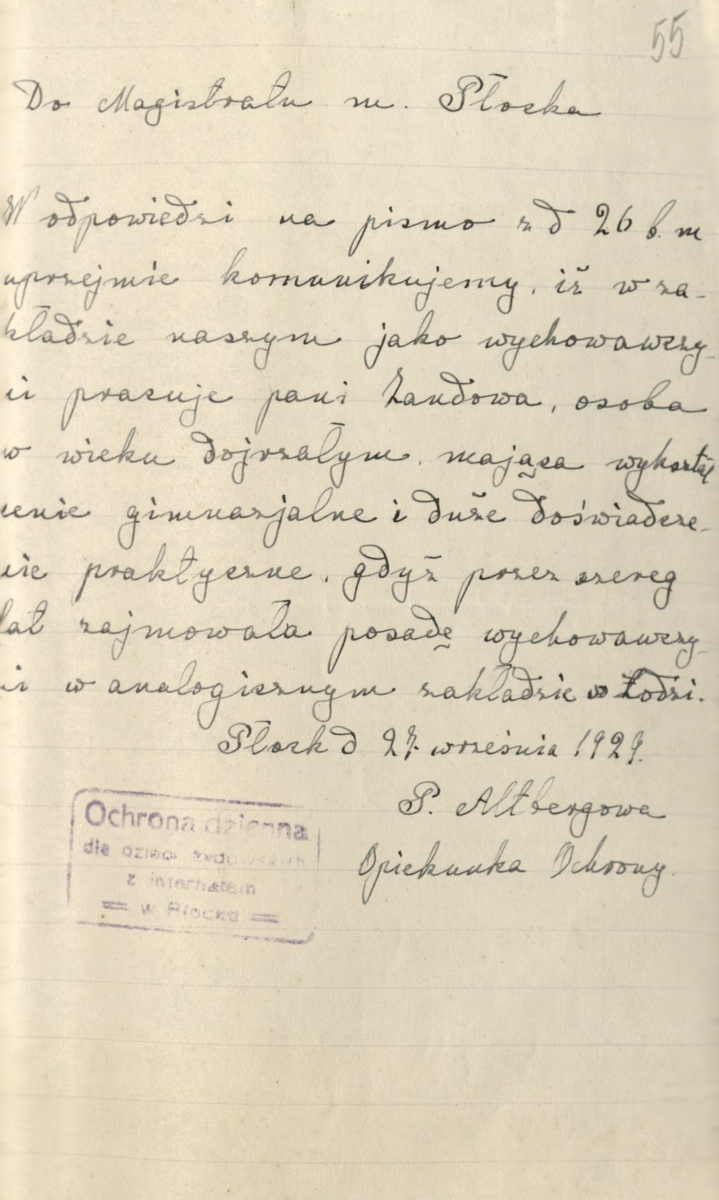 55
Do Magistratu m. Płocka
W odpowiedzi na pismo z d 26 b. m
uprzejmie komunikujemy, iż w za-
kładzie naszym jako wychowawczy-
ni pracuje pani Zandowa, osoba
w wieku dojrzałym, mająca wykształ
cenie gimnazjalne i duże doświadcze-
nie praktyczne, gdyż przez szereg
lat zajmowała posadę wychowawczy-
ni w analogicznym zakładzie w Łodzi.
Płock d 27. września 1929.
P. Altbergowa
Opiekunka Ochrony.
Ochrona dzienna
dla dzieci żydowskich
z internatem
w Płocku